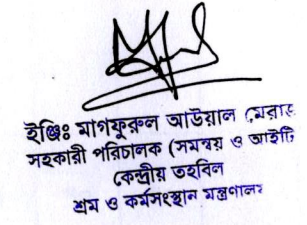 ইঞ্জিঃ মাগফুরুল আউয়াল মেরাহ
সহকারী পরিচালক (সমন্বয় ও আইটি
কেন্দ্রীয় তহবিল
শ্রম ও কর্মসংস্থান মন্ত্রণালয়